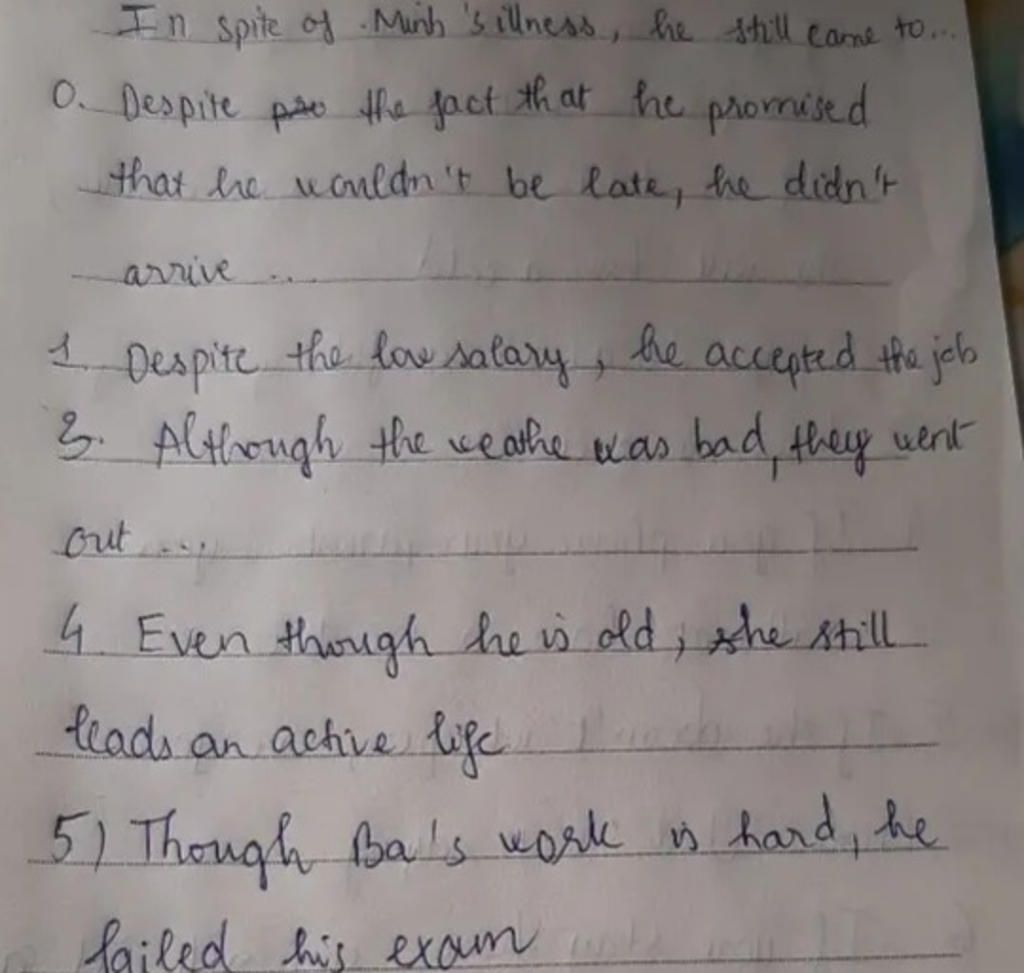 In spite of Minh's illness, he still came to...
0. Despite the fact that he promised
that he wouldn't be late, he didn't
arrive ...
1. Despite the low salary, he accepted the job
3. Although the weathe was bad, they went
out ...
4 Even though he is old, he still
leads an active life
5) Though Ba's work is hard, he
failed his exam